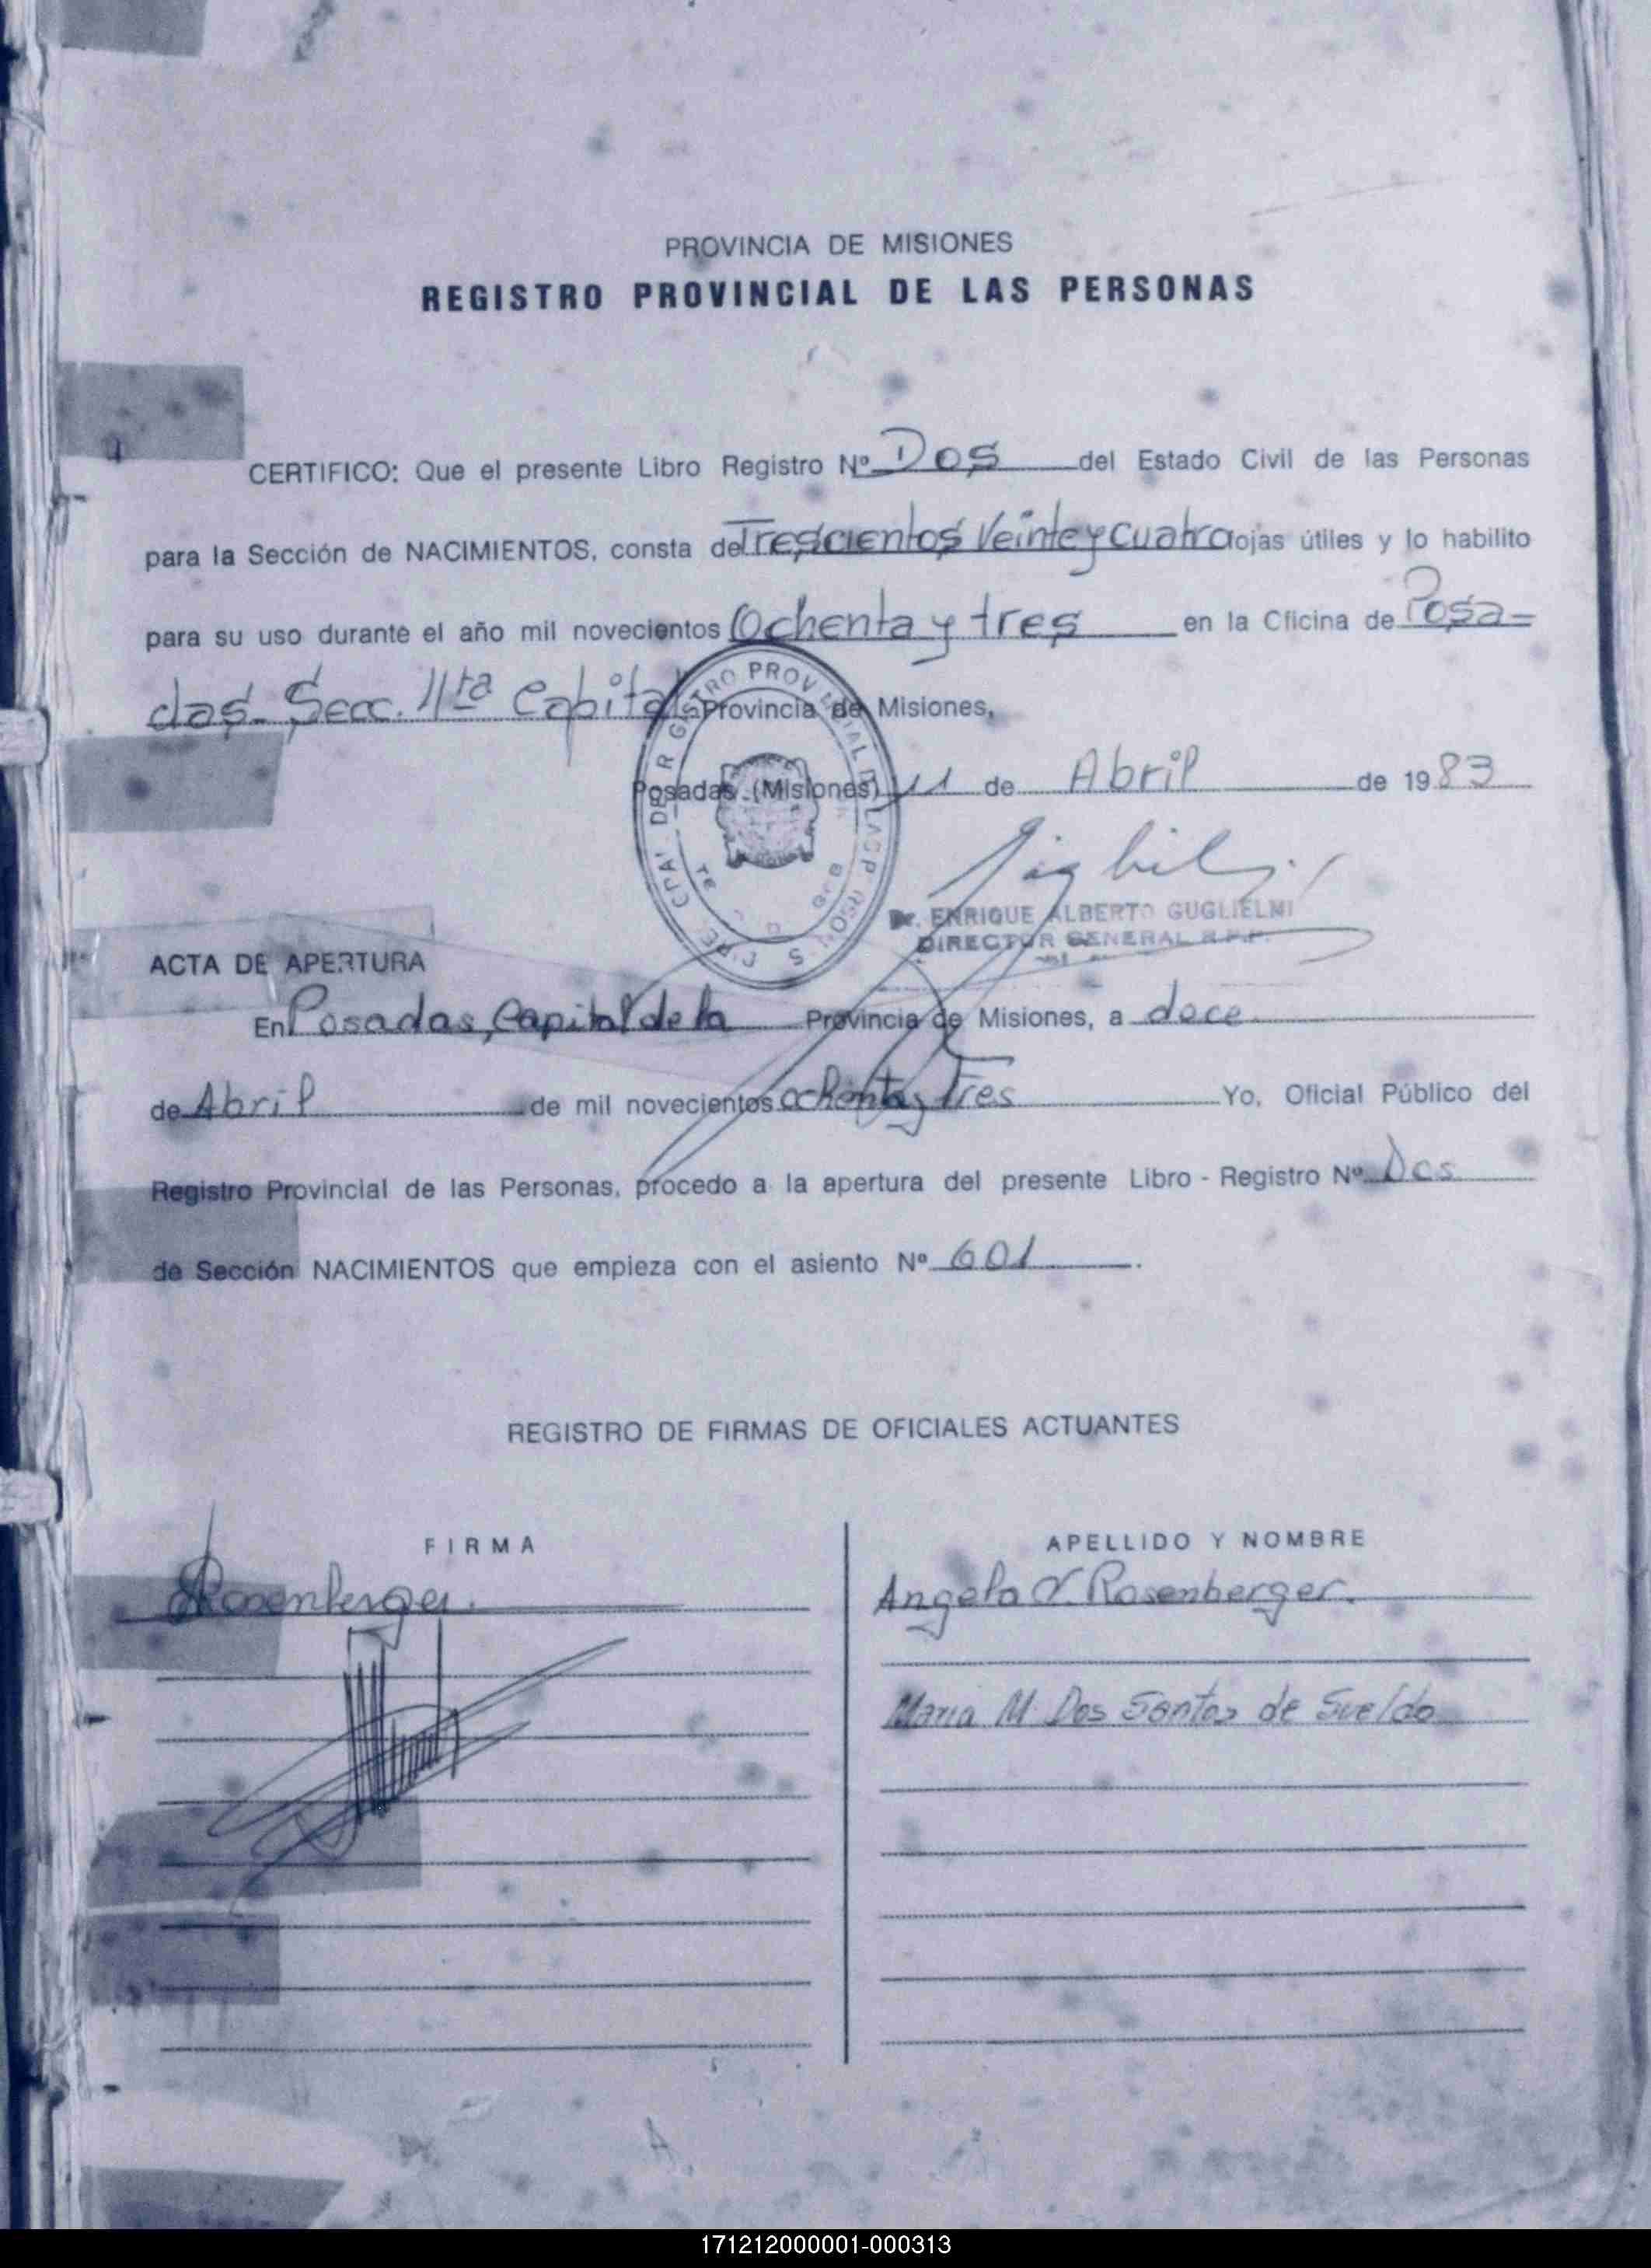 PROVINCIA DE MISIONES
REGISTRO PROVINCIAL DE LAS PERSONAS
CERTIFICO: Que el presente Libro Registro Nº Dos del Estado Civil de las Personas
para la Sección de NACIMIENTOS, consta de Trescientos Veinte y Cuatro ojas útiles y lo habilito
para su uso durante el año mil novecientos Ochenta y tres en la Oficina de Posa=
das Secc. Capital Provincia de Misiones,
Posadas (Misiones) 11 de Abril de 1983
Dr. ENRIQUE ALBERTO GUGLIELMI
DIRECTOR GENERAL R.P.P.
ACTA DE APERTURA
En Posadas, Capital de la Provincia de Misiones, a doce
de Abril de mil novecientos ochenta y Tres Yo, Oficial Público del
Registro Provincial de las Personas, procedo a la apertura del presente Libro - Registro Nº Dos
de Sección NACIMIENTOS que empieza con el asiento Nº 601.
REGISTRO DE FIRMAS DE OFICIALES ACTUANTES
FIRMA APELLIDO Y NOMBRE
Rosenberger. Angela V. Rosenberger.
Maria M. Dos Santos de Sueldo
171212000001-000313